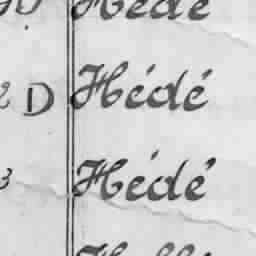 D Hédé
2 D Hédé
3 Hédé